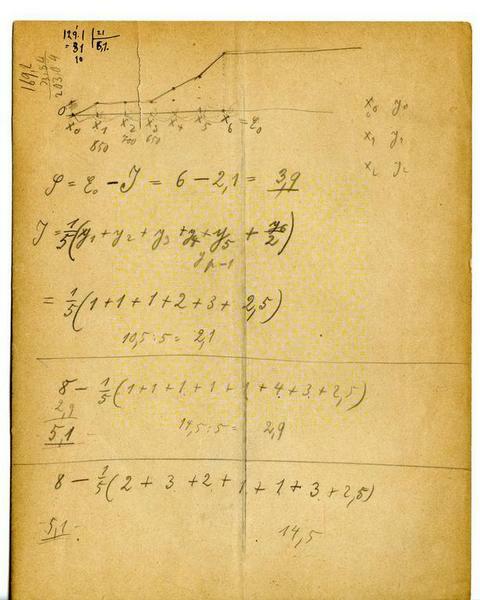 129.1 | 21
= 31
10
169,2
203.04
0
x₀ x₁ x₂ x₃ x₄ x₅ x₆ = ξ₀
850 700 650
x₀ y₀
x₁ y₁
x₂ y₂
φ = ξ₀ - J = 6 - 2,1 = 3,9
J = 1/5 (y₁ + y₂ + y₃ + y₄ + y₅ + y₆/2)
y p-1
= 1/5 (1 + 1 + 1 + 2 + 3 + 2,5)
10,5 : 5 = 2,1
8 - 1/5 (1 + 1 + 1 + 1 + 1 + 4 + 3 + 2,5)
2,9
5,1
14,5 : 5 = 2,9
8 - 1/5 (2 + 3 + 2 + 1 + 1 + 3 + 2,5)
5,1
14,5